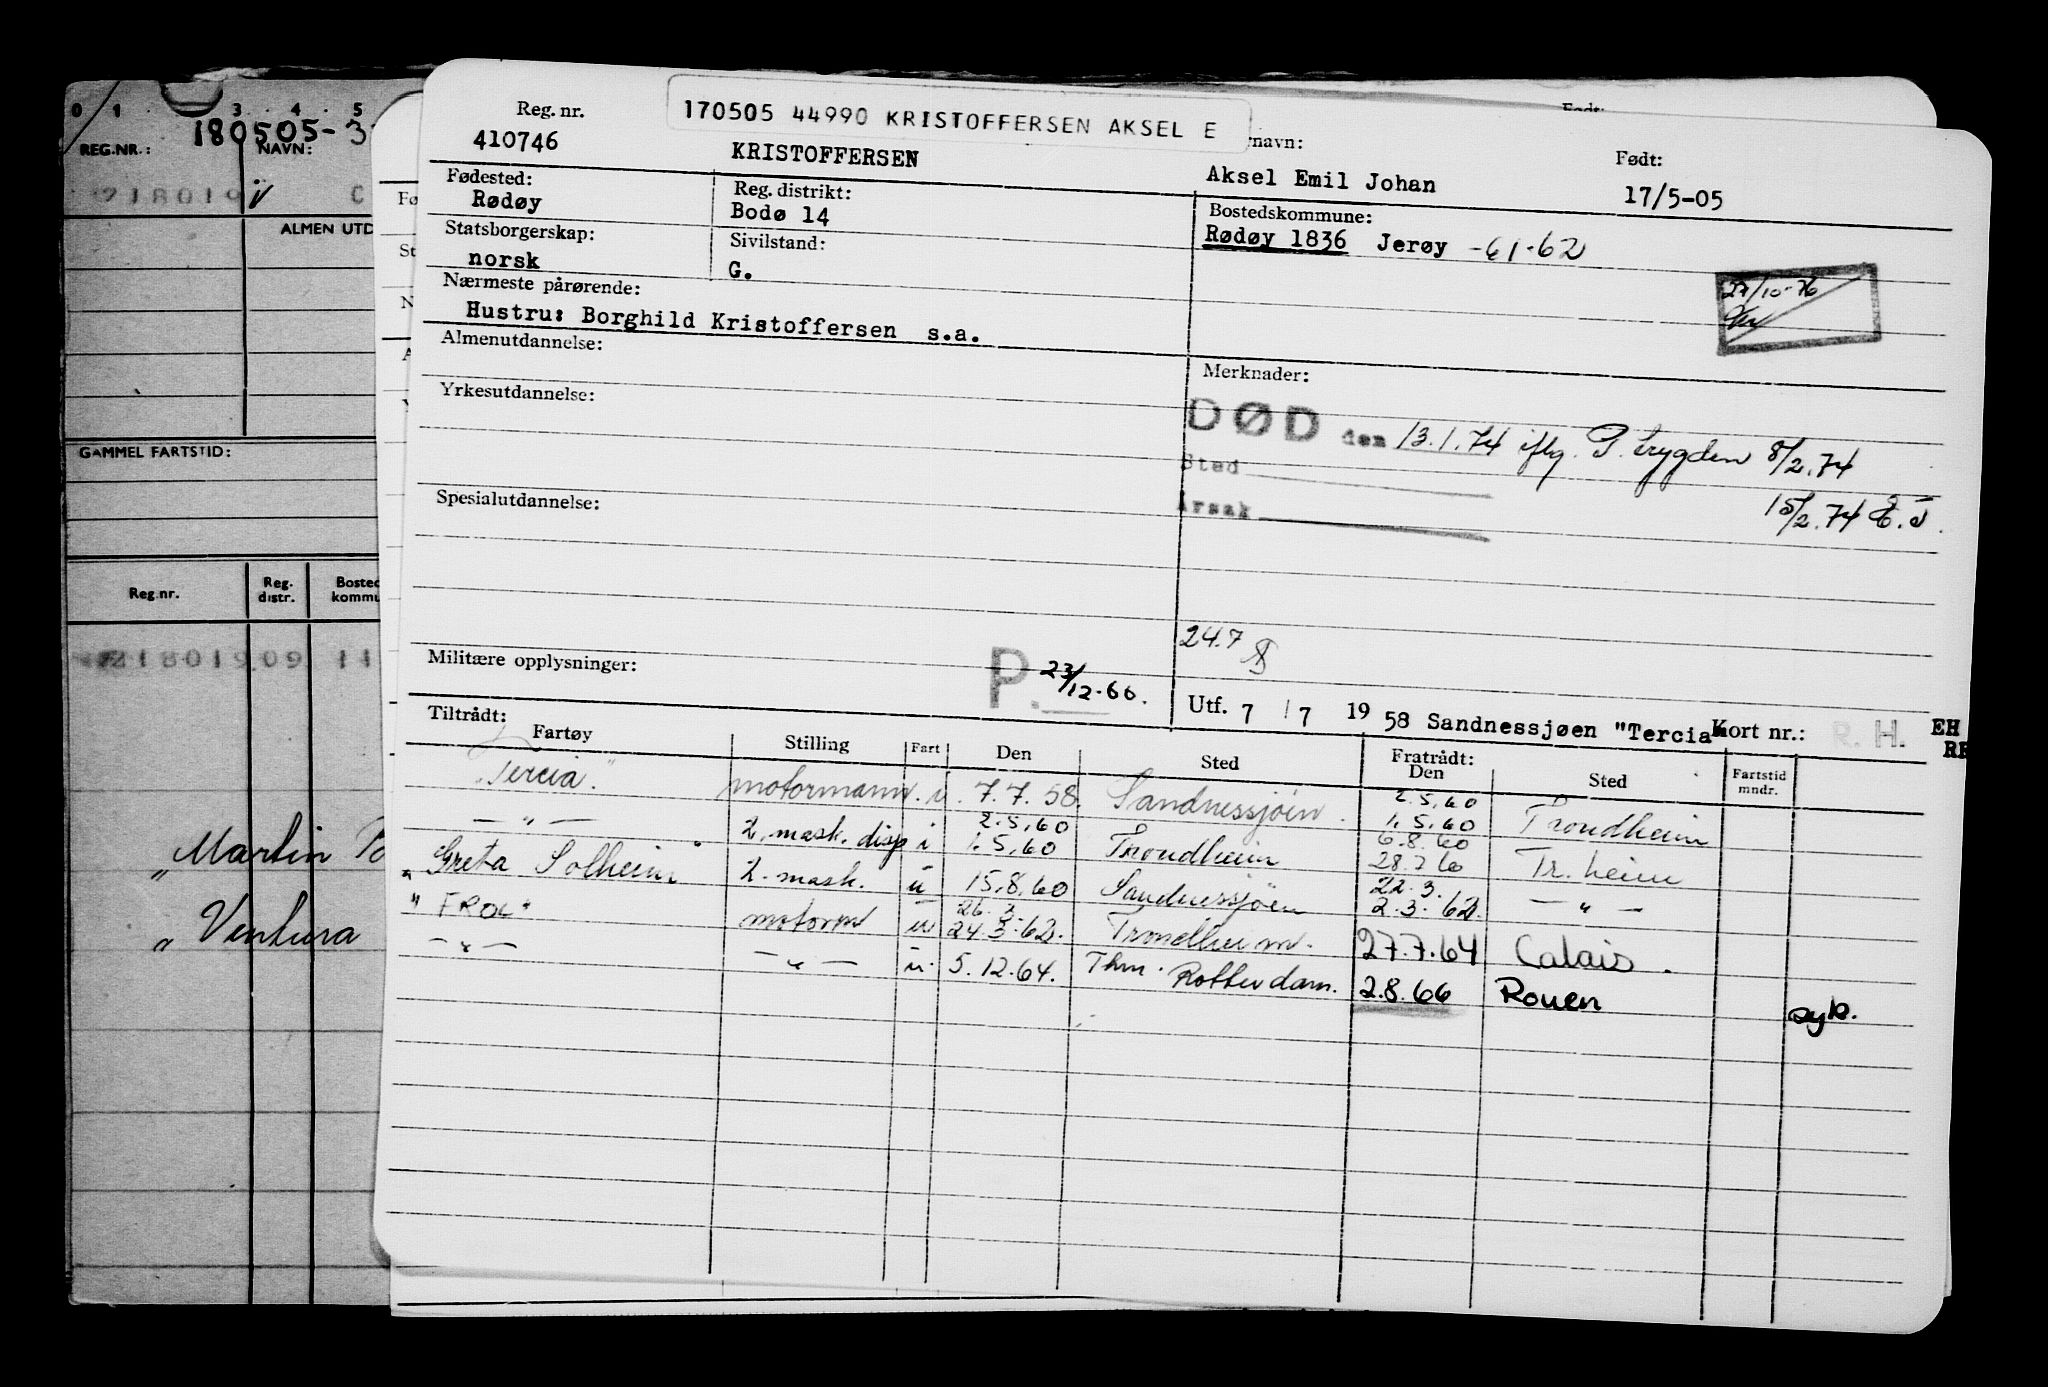 170505 44990 KRISTOFFERSEN AKSEL E
Reg. nr.
410746
KRISTOFFERSEN
navn:
Aksel Emil Johan
Født:
17/5-05
Fødested:
Rødøy
Reg. distrikt:
Bodø 14
Bostedskommune:
Rødøy 1836 Jerøy -61-62
Statsborgerskap:
norsk
Sivilstand:
G.
27/10-76
Nærmeste pårørende:
Hustru: Borghild Kristoffersen s.a.
Almenutdannelse:
Merknader:
Yrkesutdannelse:
DØD den 13.1.74 iflg. P. trygden 8/2.74
Sted
15/2.74
Årsak
Spesialutdannelse:
24.7
Militære opplysninger:
P. 23/12-66.
Utf. 7 / 7 19 58 Sandnessjøen "Tercia"
Kort nr.: R. H. EH
Tiltrådt:
Fartøy Stilling Fart Den Sted Fratrådt: Den Sted Fartstid mndr.
"Tercia." motormann. u. 7.7.58. Sandnessjøen. 2.5.60 1.5.60 Trondheim
— " — 2. mask. disp i 2.5.60 1.5.60 Trondheim 6.8.60 28.7.60 Tr. heim
"Greta Solheim" 2. mask. u 15.8.60 Sandnessjøen 22.3. 2.3.62. — " —
"FROL" motorm u 26.3. 24.3.62. Trondheim. 27.7.64 Calais.
— " — — " — u. 5.12.64. Thm. Rotterdam. 2.8.66 Rouen syk.
Født:
0 1 3 4 5
180505-3
REG.NR.: NAVN:
218019 C
ALMEN UTD
GAMMEL FARTSTID:
Reg.nr. Reg. distr. Bosted kommu
218019 09 11
"Martin
"Ventura